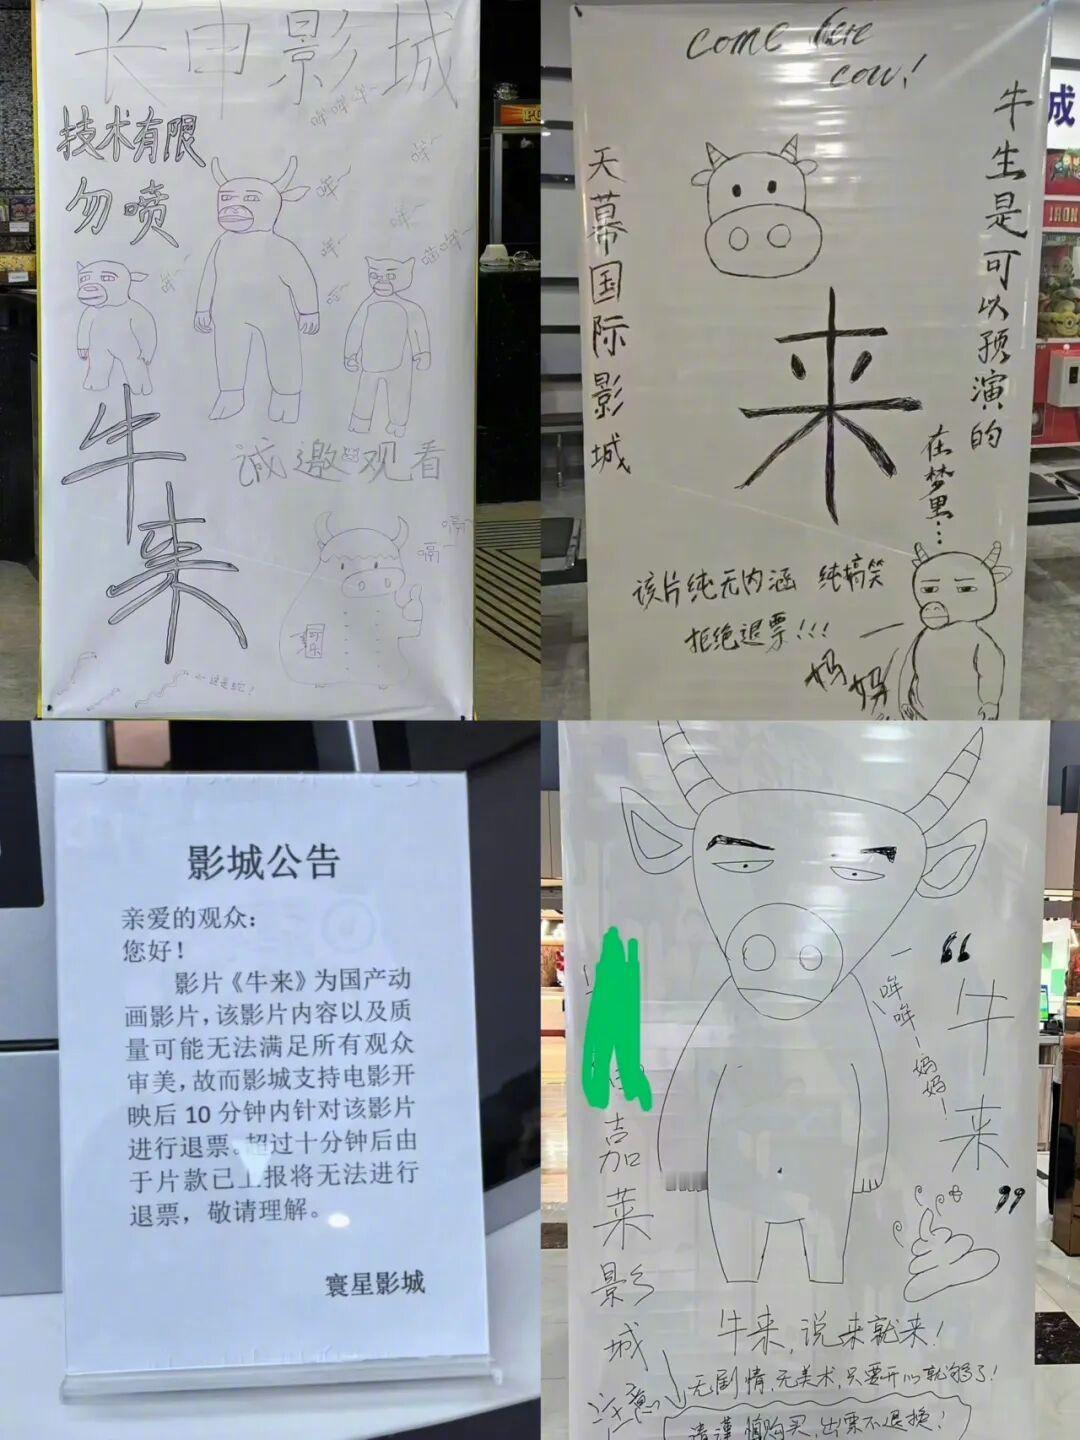 长申影城
技术有限
勿喷
哞哞哞~
哞~
哞~
哞~
哞~
喵哞~
哞~
牛来
诚邀您观看
嗝~
嗝
come here
cow!
天幕国际影城
来
牛生是可以预演的
在梦里…
该片纯无内涵 纯搞笑
拒绝退票!!!
妈妈
成
IRON
影城公告
亲爱的观众:
您好!
影片《牛来》为国产动
画影片,该影片内容以及质
量可能无法满足所有观众
审美,故而影城支持电影开
映后10分钟内针对该影片
进行退票。超过十分钟后由
于片款已上报将无法进行
退票,敬请理解。
寰星影城
嘉莱影城
“牛来”
哞哞-妈妈-
牛来,说来就来!
注意
无剧情,无美术,只要开心就够了!
请谨慎购买,出票不退换!